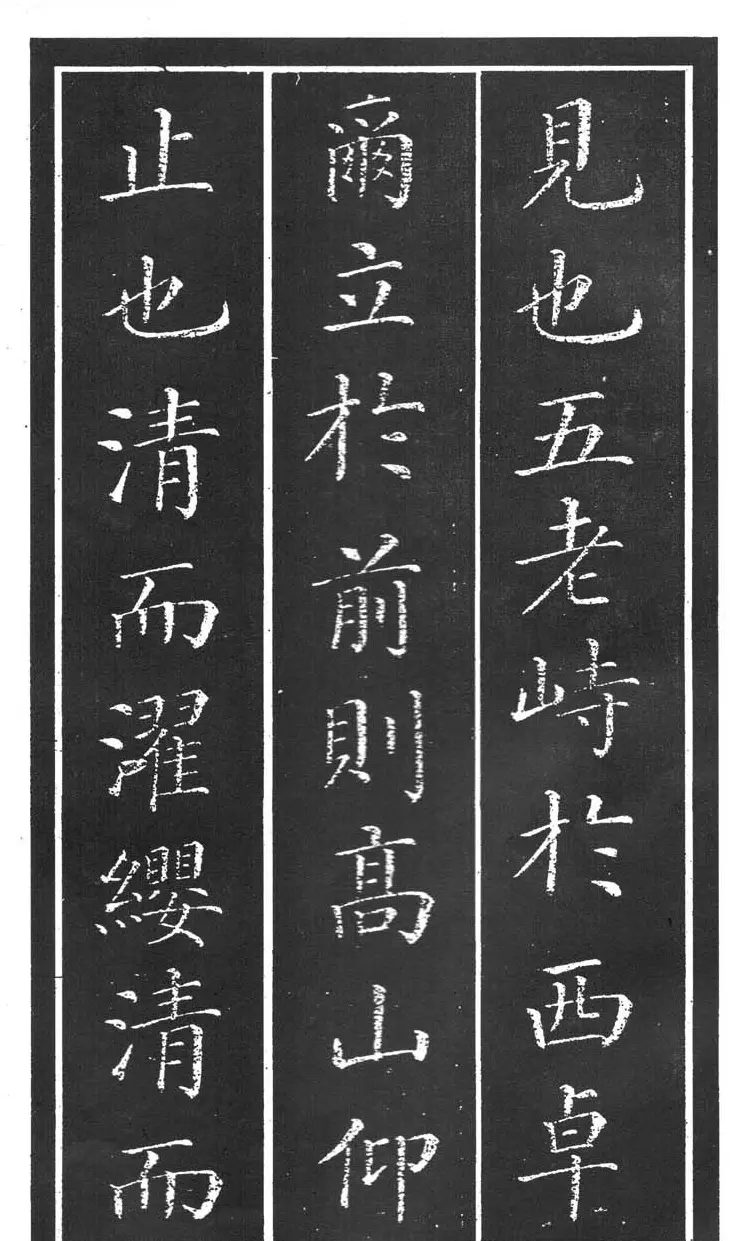 見也五老峙於西卓
爾立於前則高山仰
止也清而濯纓清而